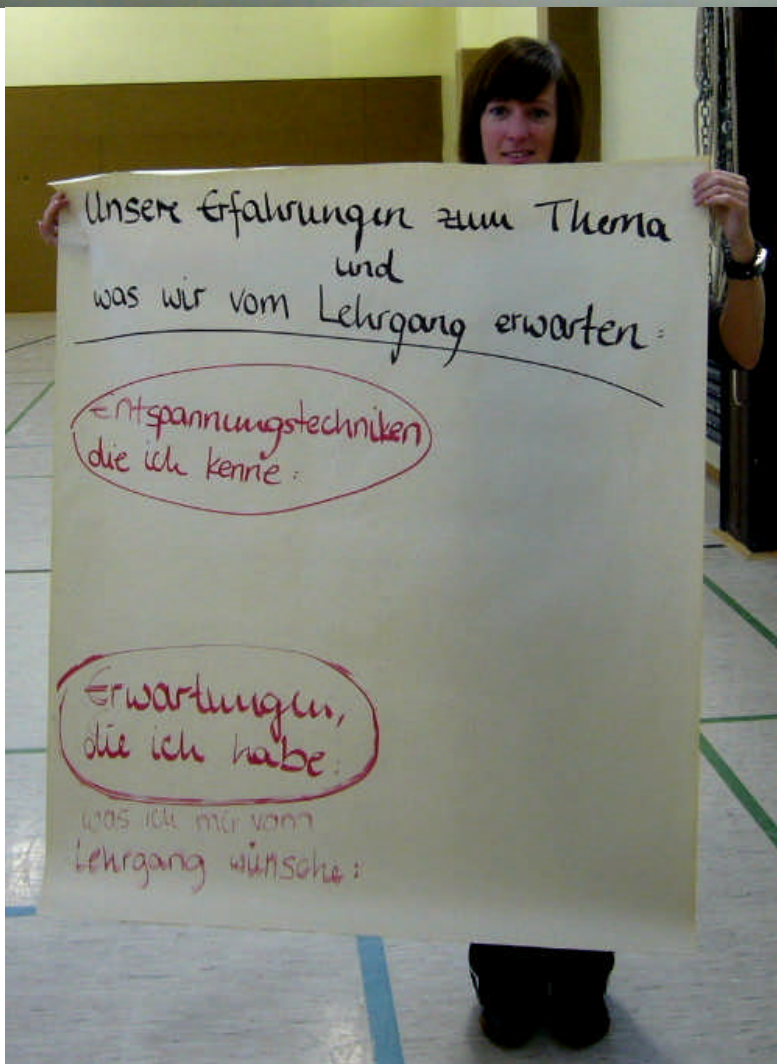 Unsere Erfahrungen zum Thema
und
was wir vom Lehrgang erwarten:
Entspannungstechniken
die ich kenne:
Erwartungen,
die ich habe:
was ich mir vom
Lehrgang wünsche: